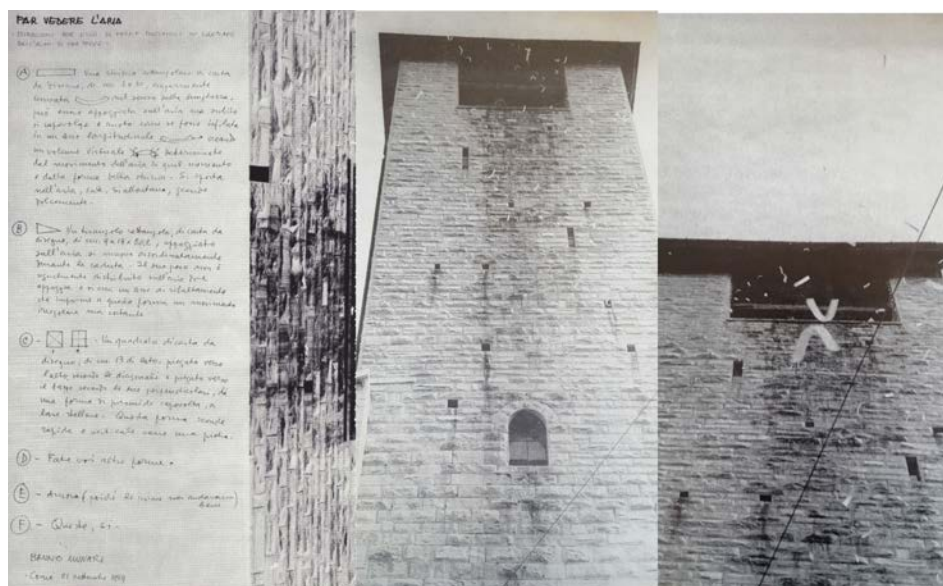 FAR VEDERE L'ARIA
(A) Una striscia rettangolare di carta
da disegno, di cm. 2 x
sul senso della lunghezza,
può essere appoggiata sull'aria ma subito
si capovolge e ruota come se fosse infilata
in un asse longitudinale creando
un volume virtuale determinato
dal movimento dell'aria in quel momento
e dalla forma della striscia. Si sposta
nell'aria, sale, si allontana, scende
(B) Un triangolo rettangolo, di carta da
disegno, di cm. appoggiato
sull'aria si muove disordinatamente
durante la caduta. Il suo peso non è
egualmente distribuito sull'aria
appoggia e si crea un asse di ribaltamento
che imprime a questa forma un movimento
irregolare ma costante
(C) - - Un quadrato di carta da
disegno, di cm 13 di lato, piegato verso
l'alto secondo le diagonali e piegato verso
il basso secondo le due perpendicolari, dà
una forma di piramide capovolta, a
base stellare. Questa forma scende
rapida e verticale come una pietra.
(D) - Fate voi altre forme.
(E) - Ancora (perché le prime non andavano)
bene
(F) - Queste, sì.
BRUNO MUNARI
Como 21 settembre 1969